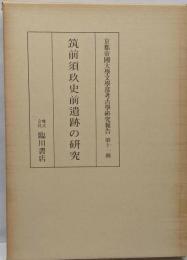 京都帝國大學文學部考古學研究報告 第十一冊
筑前須玖史前遺跡の研究
株式会社 臨川書店